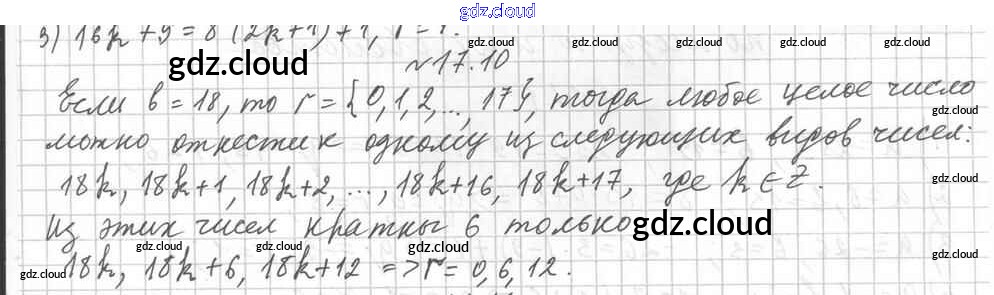 gdz.cloud
3) 16k + 9 = 8 (2k+1) + 1, r = 1.
gdz.cloud
gdz.cloud
№ 17.10
gdz.cloud
gdz.cloud
Если b = 18, то r = {0, 1, 2, ..., 17}, тогда любое целое число
gdz.cloud
можно отнести к одному из следующих видов чисел:
gdz.cloud
18k, 18k+1, 18k+2, ..., 18k+16, 18k+17, где k ∈ Z.
gdz.cloud
Из этих чисел кратны 6 только
gdz.cloud
gdz.cloud
gdz.cloud
gdz.cloud
gdz.cloud
18k, 18k+6, 18k+12 => r = 0, 6, 12.
gdz.cloud
gdz.cloud